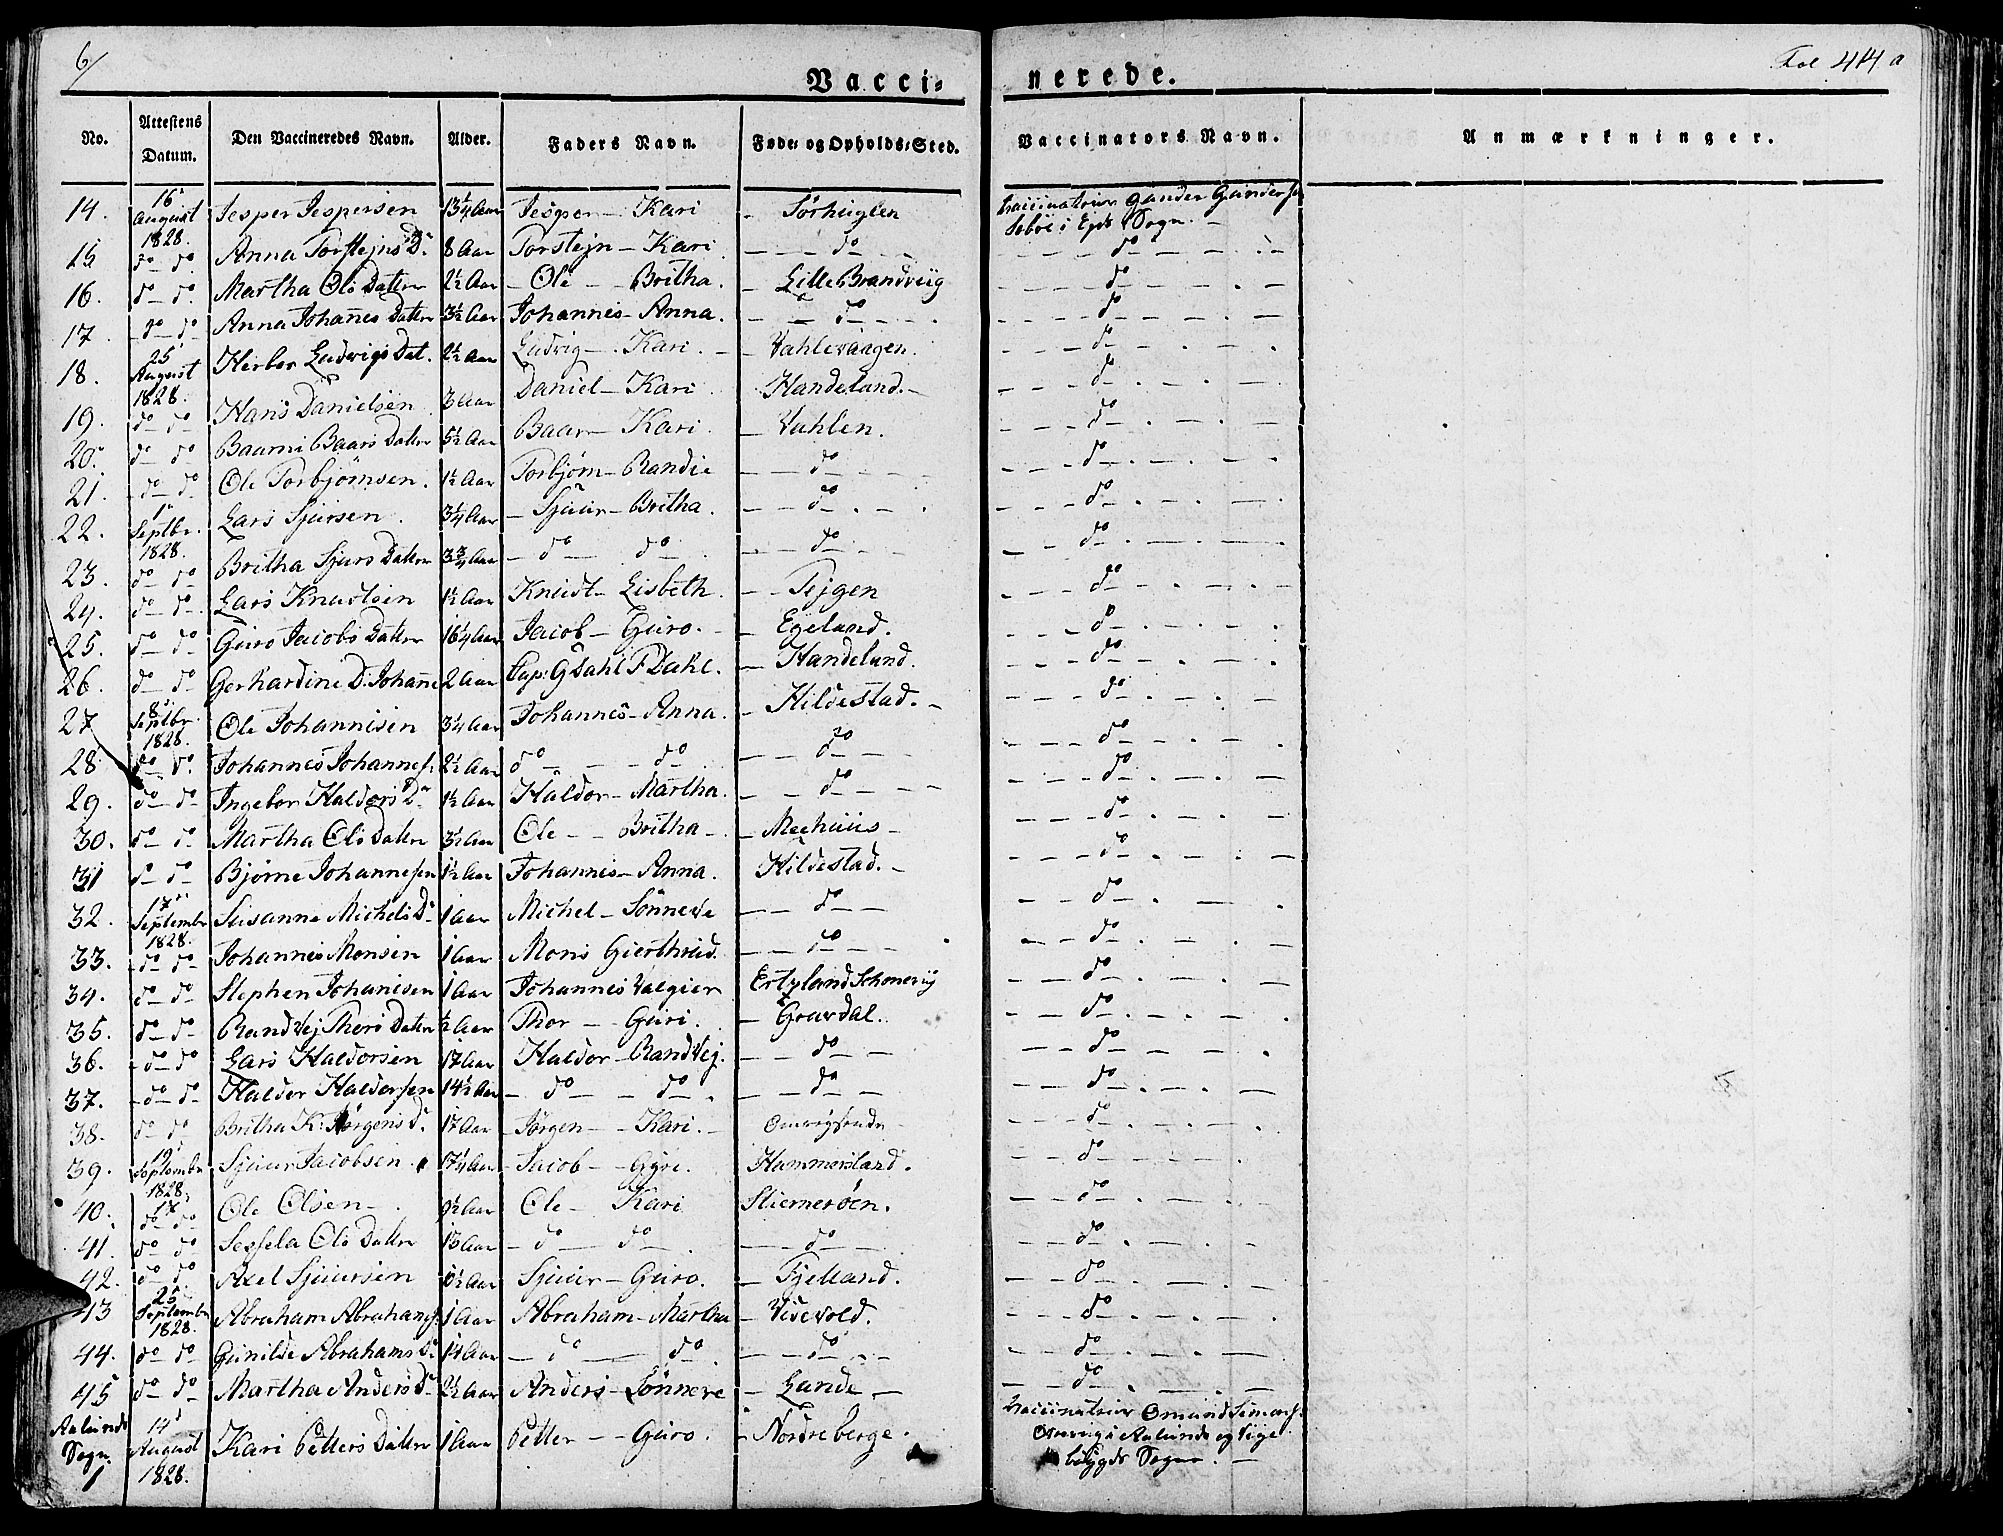 6/
Fol 44 a
Vacci= nerede.
No. Attestens Datum. Den Vaccineredes Navn. Alder. Faders Navn. Føde= og Opholds=Sted. Vaccinateurs Navn. Anmærkninger.
14. 16 August 1828. Jesper Jespersen 13¼ Aar Jesper — Kari — Sørhuglen Vaccinateur Gunder Gunders
i Sogn. —
15 do — do Anna Torstejns D. 8 Aar Torstejn — Kari — do — — do —
16. do — do Martha Ols Datter 2½ Aar — Ole — Britha. — Lille Brandviig — do —
17. do — do Anna Johannes Datter 3½ Aar Johannes — Anna. — do — — do —
18. 25 August 1828. Herbor Ludvigs Dat. 2½ Aar Ludvig — Kari. — Vahlevaagen. — do —
19. do — do Hans Danielsen 3 Aar Daniel — Kari Handeland. — — do —
20. do — do Baarni Baars Datter 5½ Aar Baar — Kari. — Vahlen. — do —
21. do — do Ole Torbjørnsen. 1½ Aar Torbjørn — Randie — do — — do —
22. 1 Septbr. 1828. Lars Sjursen. 3¼ Aar — Sjuur — Britha. — do — — do —
23. do — do Britha Sjurs Datter 3¾ Aar — do — do — do — — do —
24. do — do Lars Knudtsen 1½ Aar Knudt — Lisbeth. — Tejgen — do —
25. do — do Guro Jacobs Datter 16¼ Aar Jacob — Guro. — Egeland. — do —
26. do — do Gerhardine D. Johanne 2 Aar Cap: G Dahl F Dahl. — Handeland. — do —
27 8 Septbr. 1828. Ole Johannisen 3¼ Aar Johannes — Anna. — Hildestad. — — do —
28 do do Johannes Johannes. 2½ Aar do — do — do — — do —
29. do — do Ingebor Haldors D. 1½ Aar Haldor — Martha. — do — — do —
30. do — do Martha Ols Datter 3½ Aar Ole — Britha — — Meehuus — — do —
31 do — do Bjørne Johannesen 1½ Aar Johannes — Anna. Hildestad. — — do —
32. 17 Septembr 1828. Susanne Michels D. 1 Aar Michel — Sønneve — do — — do —
33. do — do Johannes Monsen 1 Aar Mons Gierthrud. — do — — do —
34. do — do Stephen Johanisen 1 Aar Johannes Valgier — do —
35. do — do Randvej Thors Datter ½ Aar Thor — Guri. — Gravdal. — do —
36. do — do Lars Haldorsen 17 Aar Haldor — Randvej. — do — — do —
37. do — do Haldor Haldorsen 14½ Aar — do — do — do — — do —
38. do — do Britha K. Jørgens D. 17 Aar Jørgen — Kari. — — do —
39. 19 Septembr 1828. Sjuur Jacobsen. 17¼ Aar — Jacob — Gyri. Hammersland. — do —
40. 17 do — do Ole Olsen — 9½ Aar Ole — Kari Stiernerøen. — do —
41. do — do Sessela Ols Datter 13 Aar — do — do — do — — do —
42. do — do Axel Sjuursen Aar Sjuur — Guro. — Fjelland. — do —
43 25 Septembr 1828. Abraham Abrahams. 1 Aar Abraham — Martha — Videvold. — do —
44. do — do Gunilde Abrahams D. 14 Aar — do — do — do — — do —
45 do — do Martha Anders D. 2½ Aar Anders — Sønneve — Lande — — do —
Aalunds Sogn. 1 14 August 1828. Kari Petters Datter 1 Aar Petter — Guro. — Nordreberge. Vaccinateur Omund Simons.
i Aalunds og
bøigds Sogne. —